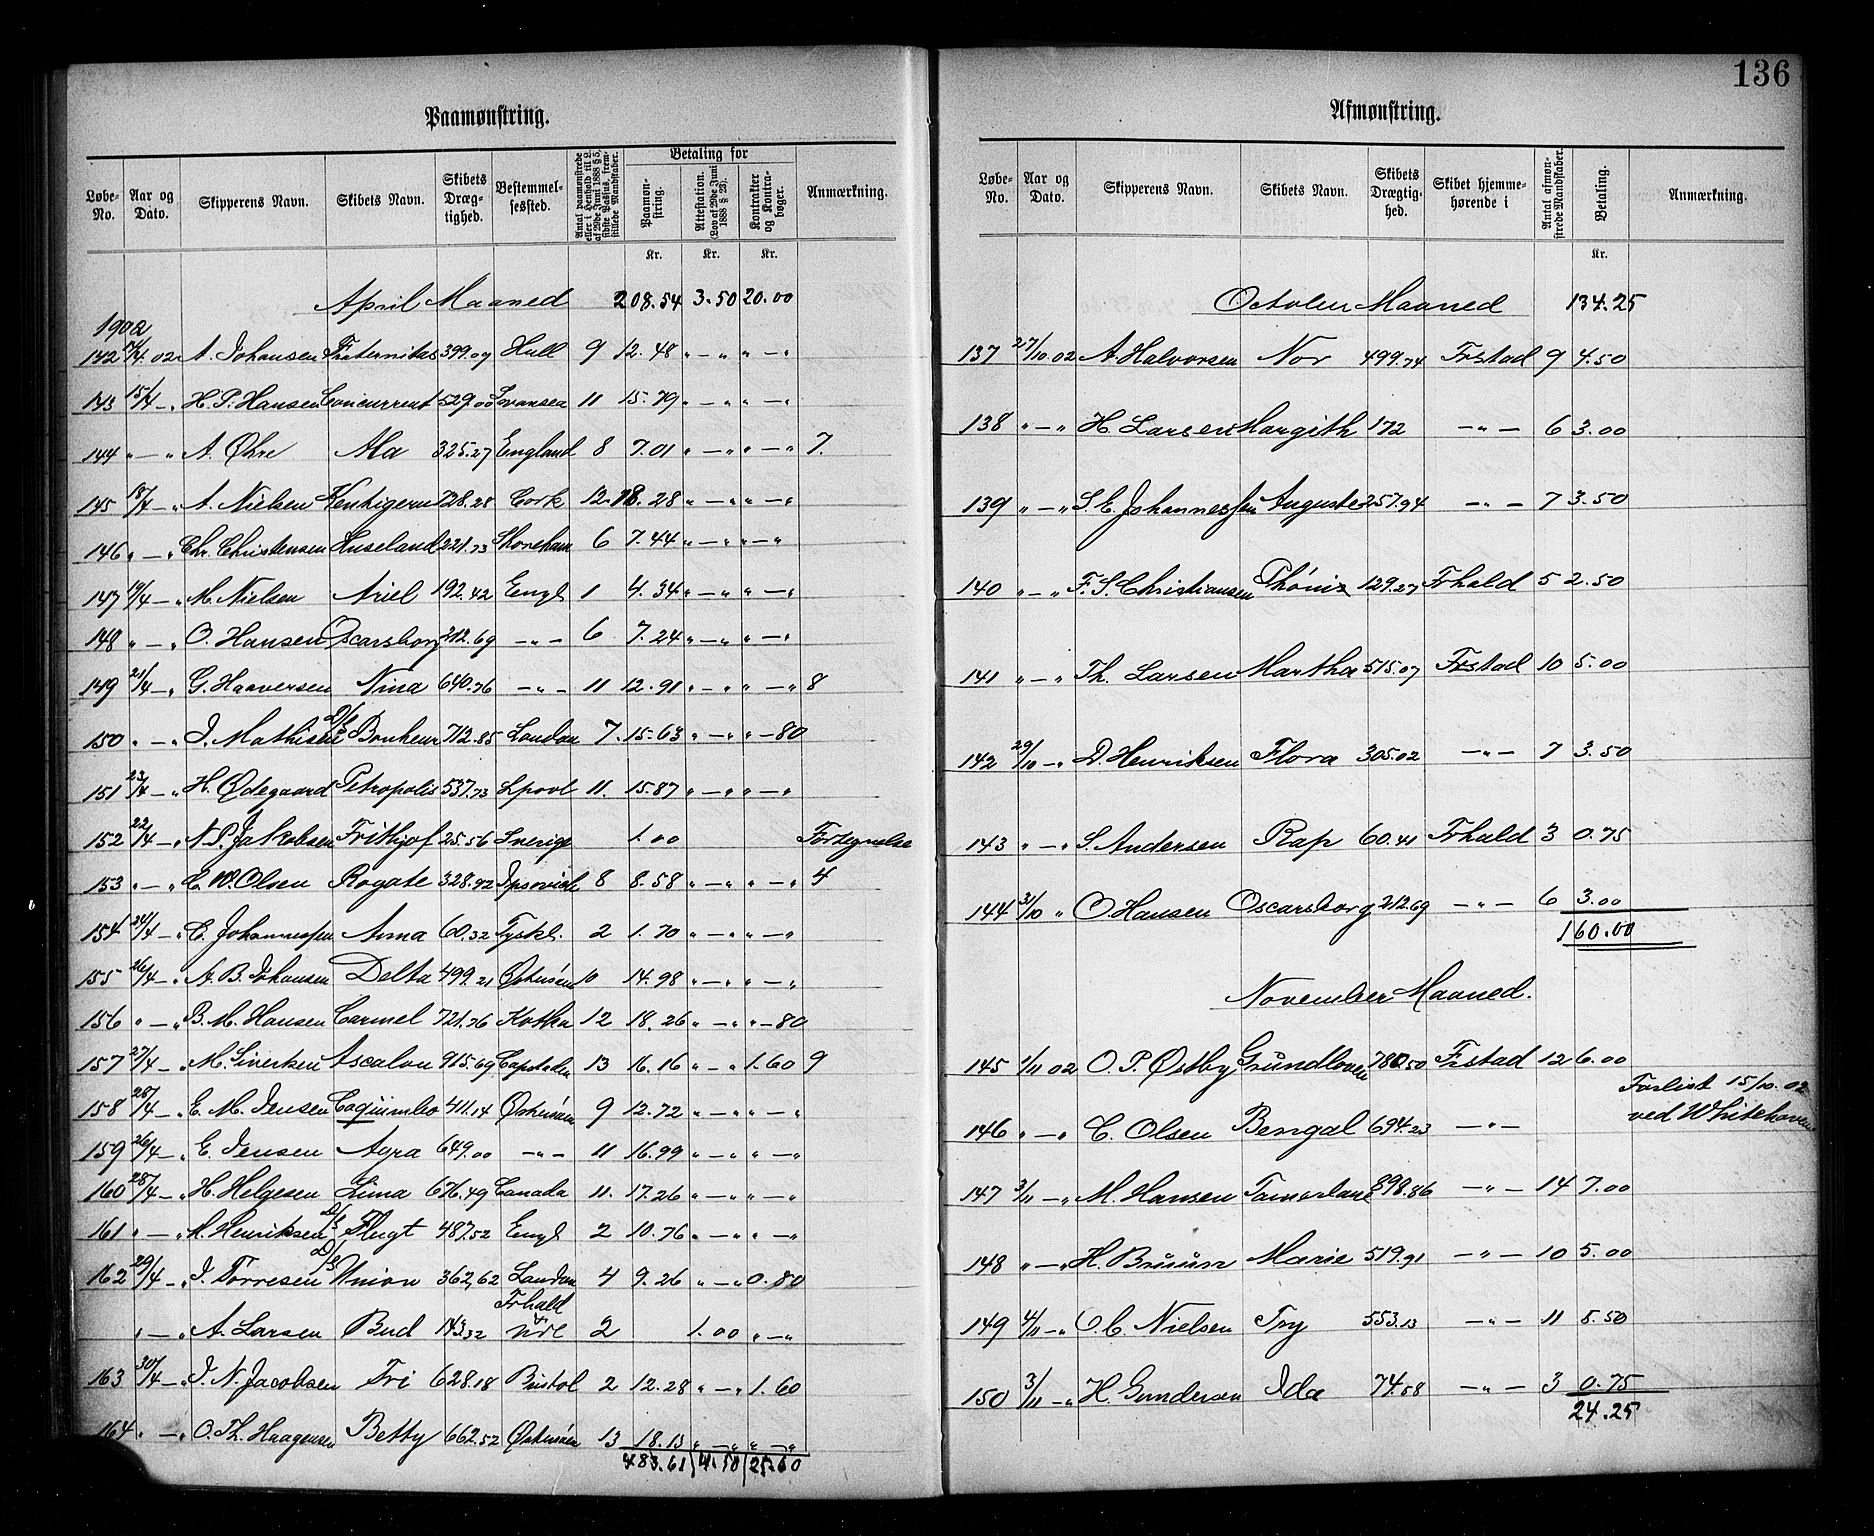 136
Paamønstring.
Løbe-No. Aar og Dato. Skipperens Navn. Skibets Navn. Skibets Dræg-tighed. Bestemmel-sessted. Antal paamønstrede eller i Henhold til L. af 29de Juni 1888 § 5, sidste Passus, frem-stillede Mandskaber. Betaling for Paamøn-string. Attestation. (Lov af 29de Juni 1888 § 23). Kontrakter og Kontra-bøger. Anmærkning.
Kr. Kr. Kr.
April Maaned 208.54 3.50 20.00
1902
142 14/4 02 A. Johansen Fraternitas 399.09 Hull 9 12.48 " — " " — "
143 15/4 — " H. P. Hansen Concurrent 529.00 Svansea 11 15.79 " — " " — "
144 " — " A. Øhre Ala 325.27 England 8 7.01 " — " " — " 7.
145 18/4 — " A. Nielsen Kentigern 728.28 Cork 12 18.28 " — " " — "
146 " — " Chr. Christensen Huseland 221.73 Shoreham 6 7.44 " — " " — "
147 19/4 — " M. Nielsen Ariel 192.42 Engl 1 4.34 " — " " — "
148 " — " O. Hansen Oscarsborg 212.69 — " — 6 7.24 " — " " — "
149 21/4 — " G. Haaversen Nina 640.76 — " — 11 12.91 " — " " — " 8
150 " — " J. Mathisen D/S Bonheur 712.85 London 7 15.63 " — " " — 80
151 23/4 — " H. Ødegaard Petropolis 537.73 Lpool 11 15.87 " — " " — "
152 22/4 — " N. P. Jakobsen Frithjof 25.56 Sverige 1.00 Fortegnelse
153 " — " C. W. Olsen Rogate 328.92 Ipsovich 8 8.58 " — " " — " 4
154 24/4 — " C. Johannessen Anna 60.32 Tyskl. 2 1.70 " — " " — "
155 26/4 — " A. B. Johansen Delta 499.21 Østersøen 10 14.98 " — " " — "
156 " — " B. M. Hansen Carmel 721.76 Kotka 12 18.26 " — " " — 80
157 27/4 — " M. Sivertsen Ascalon 915.69 Capstaden 13 16.16 " — " 1.60 9
158 28/4 — " E. M. Jensen Coquimbo 411.14 Østersøen 9 12.72 " — " " — "
159 26/4 — " E. Jensen Agra 649.00 — " — 11 16.99 " — " " — "
160 28/4 — " H. Helgesen Lima 676.49 Canada 11 17.26 " — " " — "
161 " — " H. Henriksen D/S Flugt 487.52 Engl 2 10.76 " — " " — "
162 29/4 — " J. Torresen D/S Union 362,62 London 4 9.26 " — " 0.80
" — " A. Larsen Bud 143.32 Frhald 2 1.00 " — "
163 30/4 — " J. N. Jacobsen Fri 628.18 Bristol 2 12.28 " — " 1.60
164 " — " O. Th. Haagensen Betty 662.52 Østersøen 13 18.13 " — " " — "
483.61 4.50 25.60
Afmønstring.
Løbe-No. Aar og Dato. Skipperens Navn. Skibets Navn. Skibets Drægtig-hed. Skibet hjemme-hørende i Antal afmøn-strede Mandskaber. Betaling. Anmærkning.
Kr.
October Maaned 134.25
137 27/10 02 A. Halvorsen Nor 499.74 Frstad 9 4.50
138 " — " H. Larsen Margith 172 — " — 6 3.00
139 " — " S. C. Johannessen Auguste 257.94 — " — 7 3.50
140 " — " F. S. Christiansen Phönix 129.27 Frhald 5 2.50
141 " — " Th. Larsen Martha 515.07 Frstad 10 5.00
142 29/10 — " D. Henriksen Flora 305.02 — " — 7 3.50
143 " — " S. Andersen Rap 60.41 Frhald 3 0.75
144 31/10 " O. Hansen Oscarsborg 212.69 — " — 6 3.00
160.00
November Maaned.
145 1/11 02 O. P. Østby Grundloven 780.50 Frstad 12 6.00
146 " — " C. Olsen Bengal 694.23 — " — Forlist 15/10.02
ved Whitehaven
147 3/11 — " M. Hansen Tamerlane 898.86 — " — 14 7.00
148 " — " H. Bruun Marie 519.91 — " — 10 5.00
149 4/11 — " O. C. Nielsen Try 553.13 — " — 11 5.50
150 3/11 — " H. Gundersen Ida 74.58 — " — 3 0.75
24.25